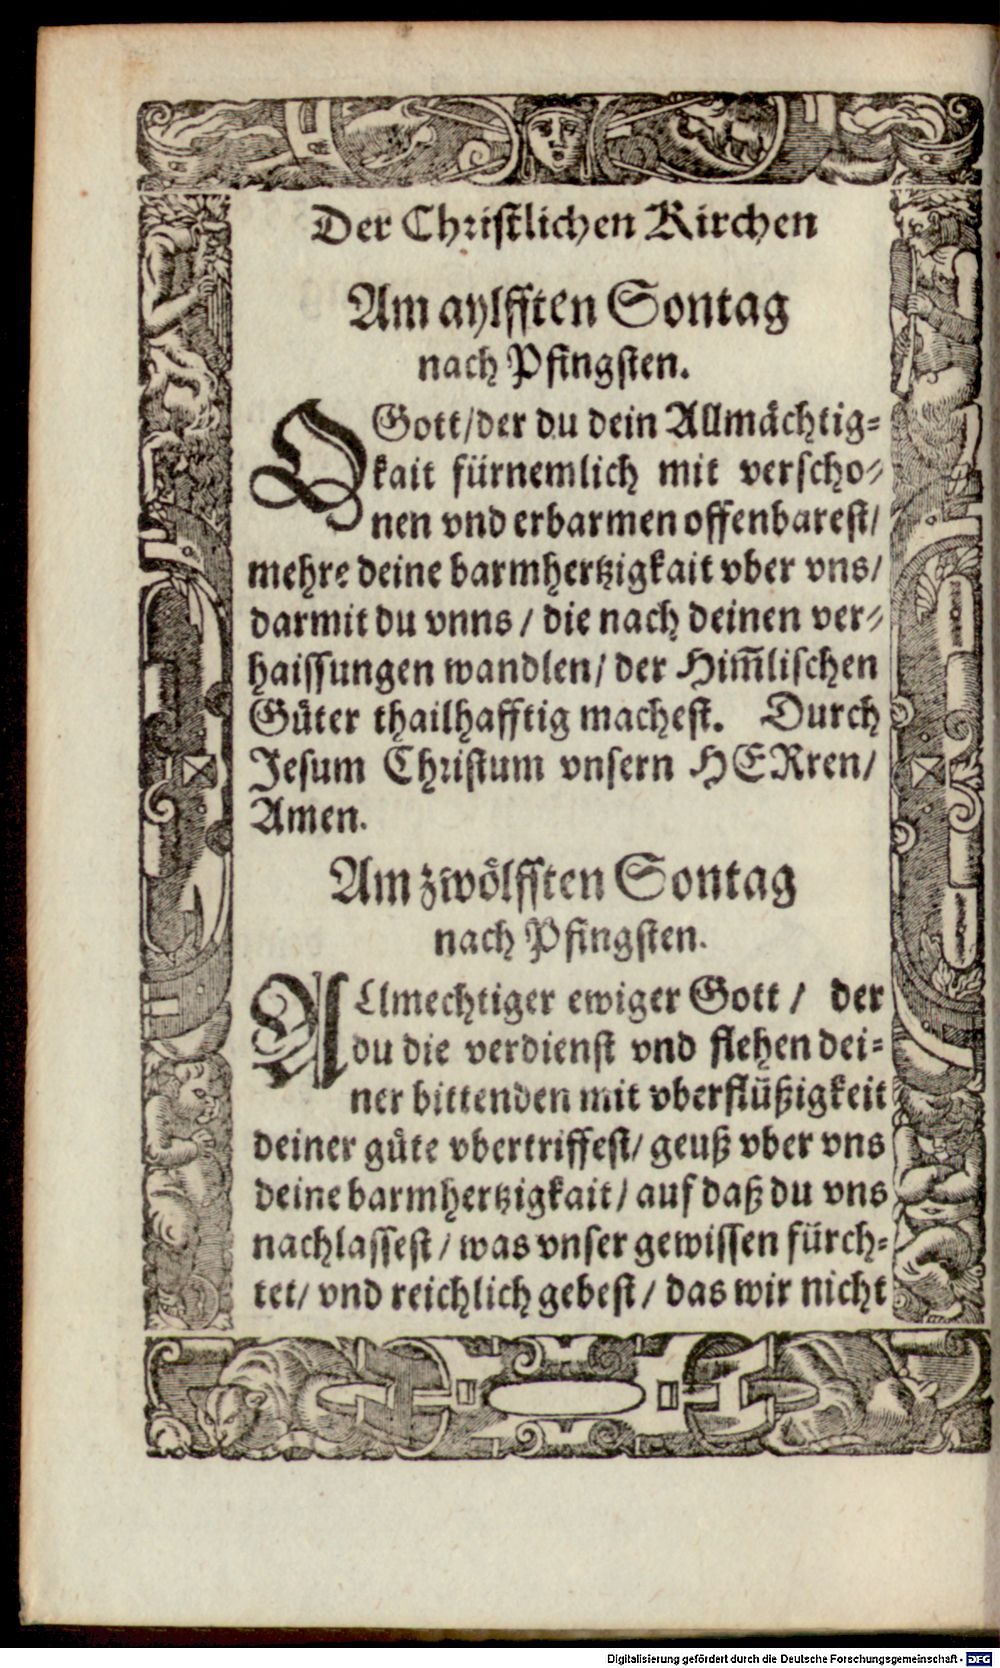 Der Christlichen Kirchen
Am aylfften Sontag
nach Pfingsten.
O Gott/der du dein Allmächtig-
kait fürnemlich mit verscho-
nen vnd erbarmen offenbarest/
mehre deine barmhertzigkait vber vns/
darmit du vnns / die nach deinen ver-
haissungen wandlen/ der Him̃lischen
Güter thailhafftig machest. Durch
Jesum Christum vnsern HERren/
Amen.
Am zwölfften Sontag
nach Pfingsten.
Allmechtiger ewiger Gott / der
du die verdienst vnd flehen dei-
ner bittenden mit vberflüßigkeit
deiner güte vbertriffest/ geuß vber vns
deine barmhertzigkait/ auf daß du vns
nachlassest / was vnser gewissen fürch-
tet/ vnd reichlich gebest / das wir nicht
Digitalisierung gefördert durch die Deutsche Forschungsgemeinschaft - DFG